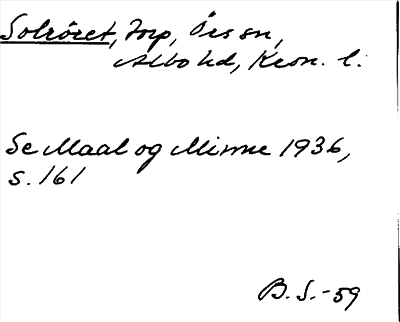 Solröret, torp, Össn,
Albo hd, Kron. l.
Se Maal og Minne 1936,
s. 161
B. S. -59